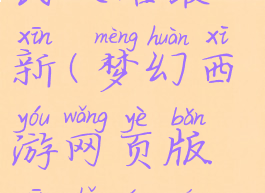 xīn mèng huàn xī
新(梦幻西
yóu wǎng yè bǎn
游网页版